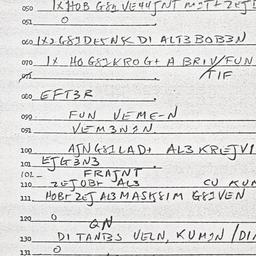 050 1X HOB G8H VE44JNT MOT+ZEJD
051 0
060 1X2 G81DEJNK DI ALT3 BOB3N
070 1X HO G81KROG+ A BRIV/FUN
071 TIF
080 EFT3R
090 FUN VEME-N
091 VEM3N2N.
100 AJNG81LAD+ AL3 KREJVI
101 EJG3N3
102 FRAJNT
110 ZEJOB+ AL3 CU KUM
111 HOB+ ZEJ AL3 MASK81M G81VEN
120 0
130 DI TANT3S VELN, KUM2N /DI
131 0